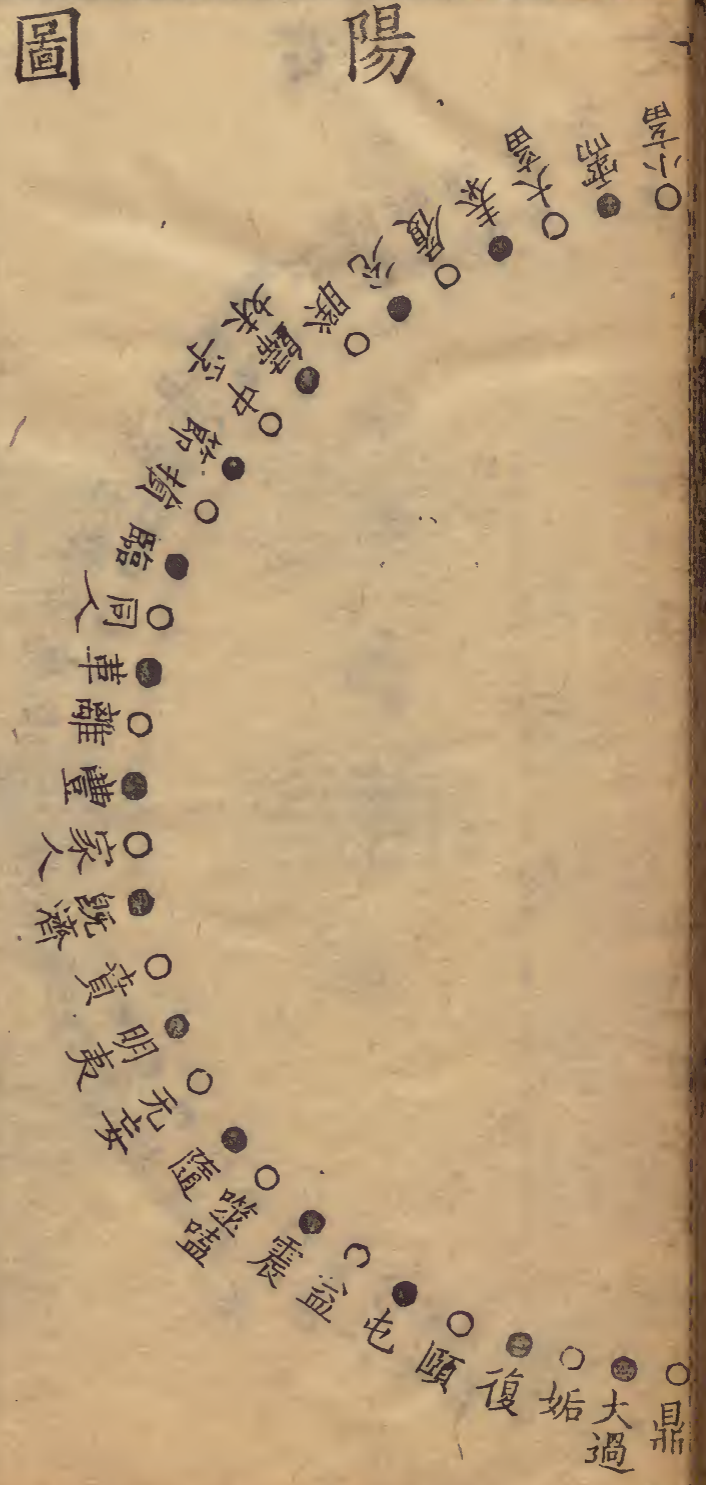 陽
圖
小畜
需
大畜
泰
履
兌
睽
歸妹
中孚
節
損
臨
同人
革
離
豐
家人
既濟
賁
明夷
无妄
隨
噬嗑
震
益
屯
頤
復
姤
大過
鼎